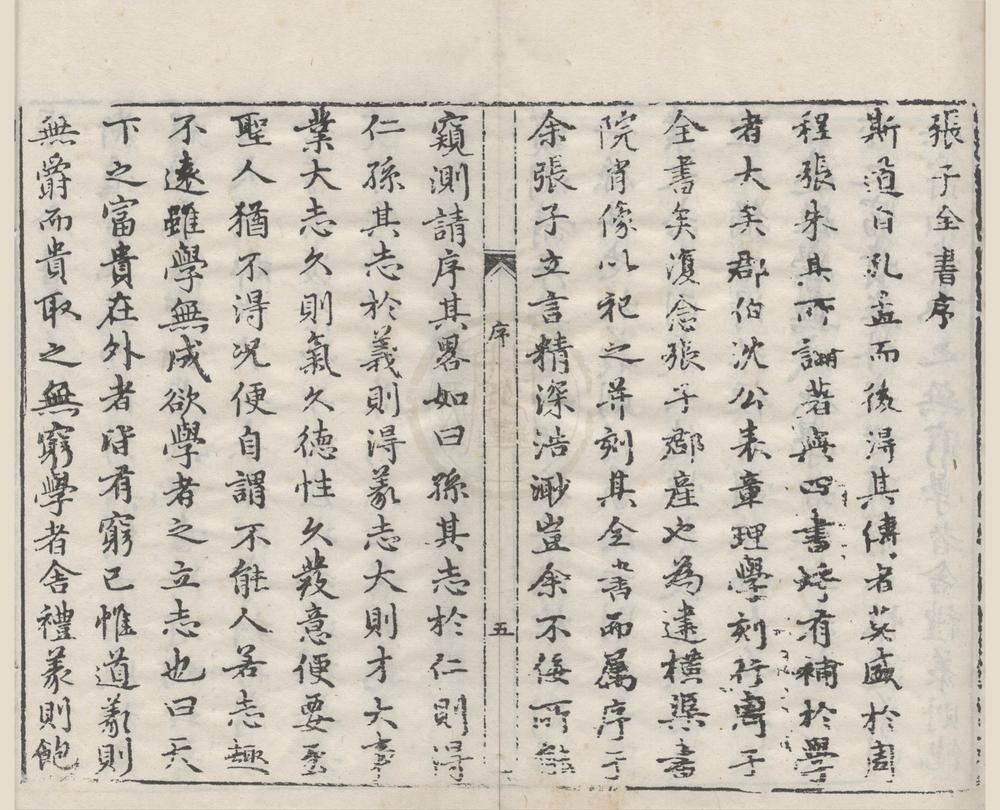 張子全書序
斯道自孔孟而後得其傳者莫盛於周
程張朱其所論著與四書竝有補於學
者大矣郡伯沈公表章理學刻行
全書矣復念張子郡產也為建橫渠書
院肖像以祀之并刻其全書而屬序于
余張子立言精深浩渺豈余不佞所能
序
五
窺測請序其畧如曰孫其志於仁則得
仁孫其志於義則得義志大則才大事
業大志久則氣久德性久發意便要至
聖人猶不得况便自謂不能人若志趣
不遠雖學無成欲學者之立志也曰天
下之富貴在外者皆有窮已惟道義則
無爵而貴取之無窮學者舍禮義則飽